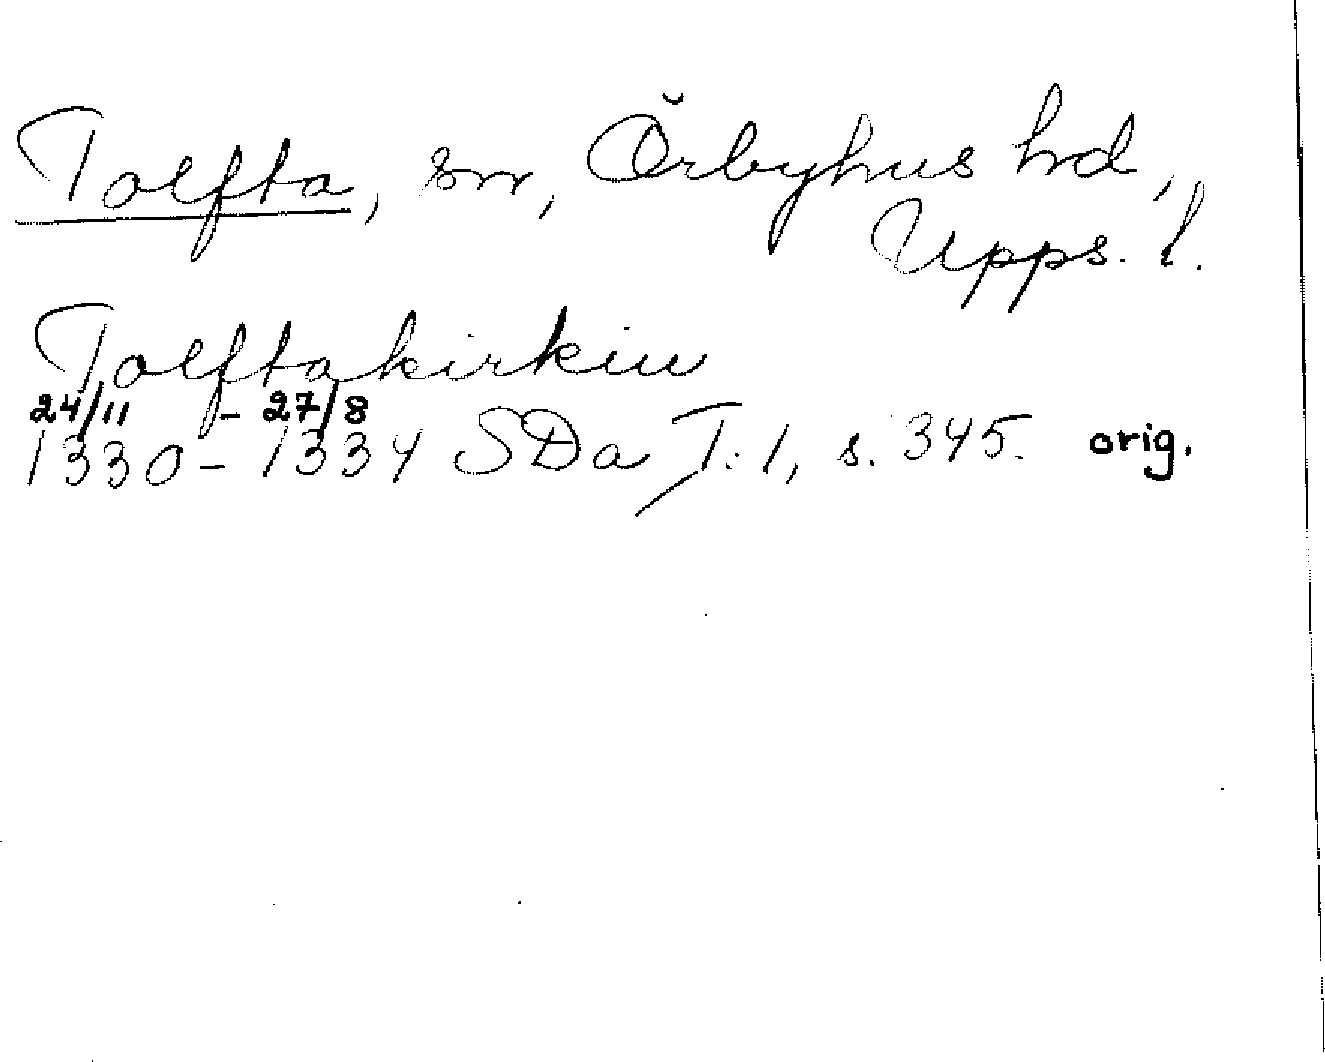 Tolfta, sn, Örbyhus hd,
Upps. l.
Tolftakirkiu
24/11 - 27/8
1330-1334 SDa T: 1, s. 345. orig.